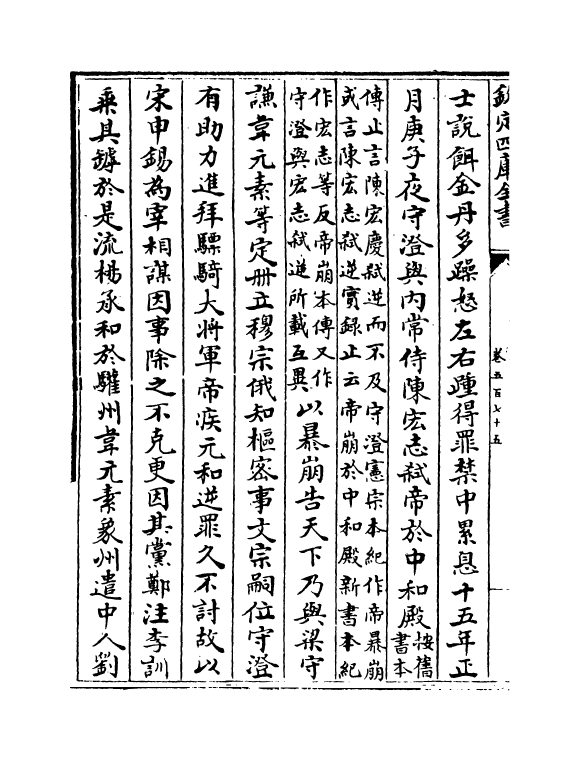 欽定四庫全書
卷五百七十五
士說餌金丹多躁怒左右踵得罪禁中累息十五年正
月庚子夜守澄與内常侍陳宏志弑帝於中和殿按舊
書本
傳止言陳宏慶弑逆而不及守澄憲宗本紀作帝暴崩
或言陳宏志弑逆實錄止云帝崩於中和殿新書本紀
作宏志等反帝崩本傳又作
守澄與宏志弑逆所載互異以暴崩告天下乃與梁守
謙韋元素等定册立穆宗俄知樞密事文宗嗣位守澄
有助力進拜驃騎大將軍帝疾元和逆罪久不討故以
宋申錫為宰相謀因事除之不克更因其黨鄭注李訓
乘其罅於是流楊承和於驩州韋元素象州遣中人劉